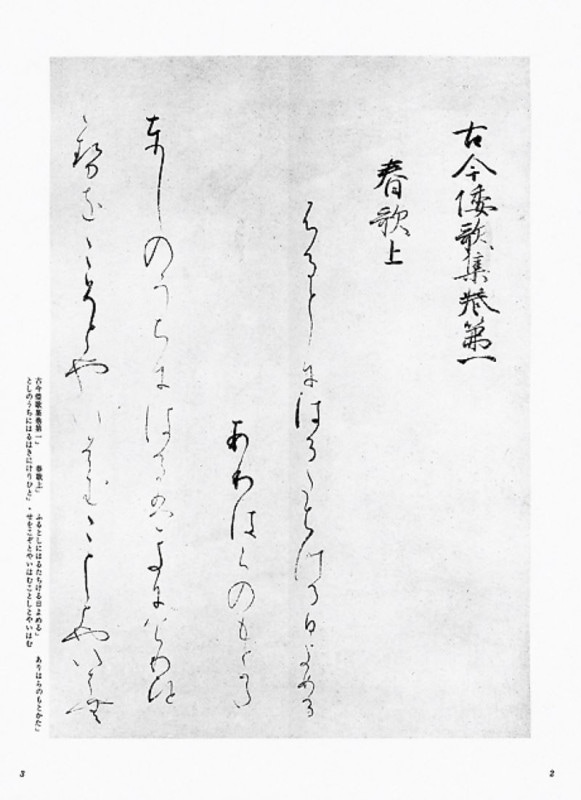 古今倭歌集巻第一
春歌上
ふるとしにはるたちける日よめる
ありはらのもとかた
としのうちにはるはきにけりひと
せをこそとやいはむことしとやいはむ
古今倭歌集巻第一」 春歌上」 ふるとしにはるたちける日よめる」 ありはらのもとかた」
としのうちにはるはきにけりひと」せをこぞとやいはむことしとやいはむ
2
3